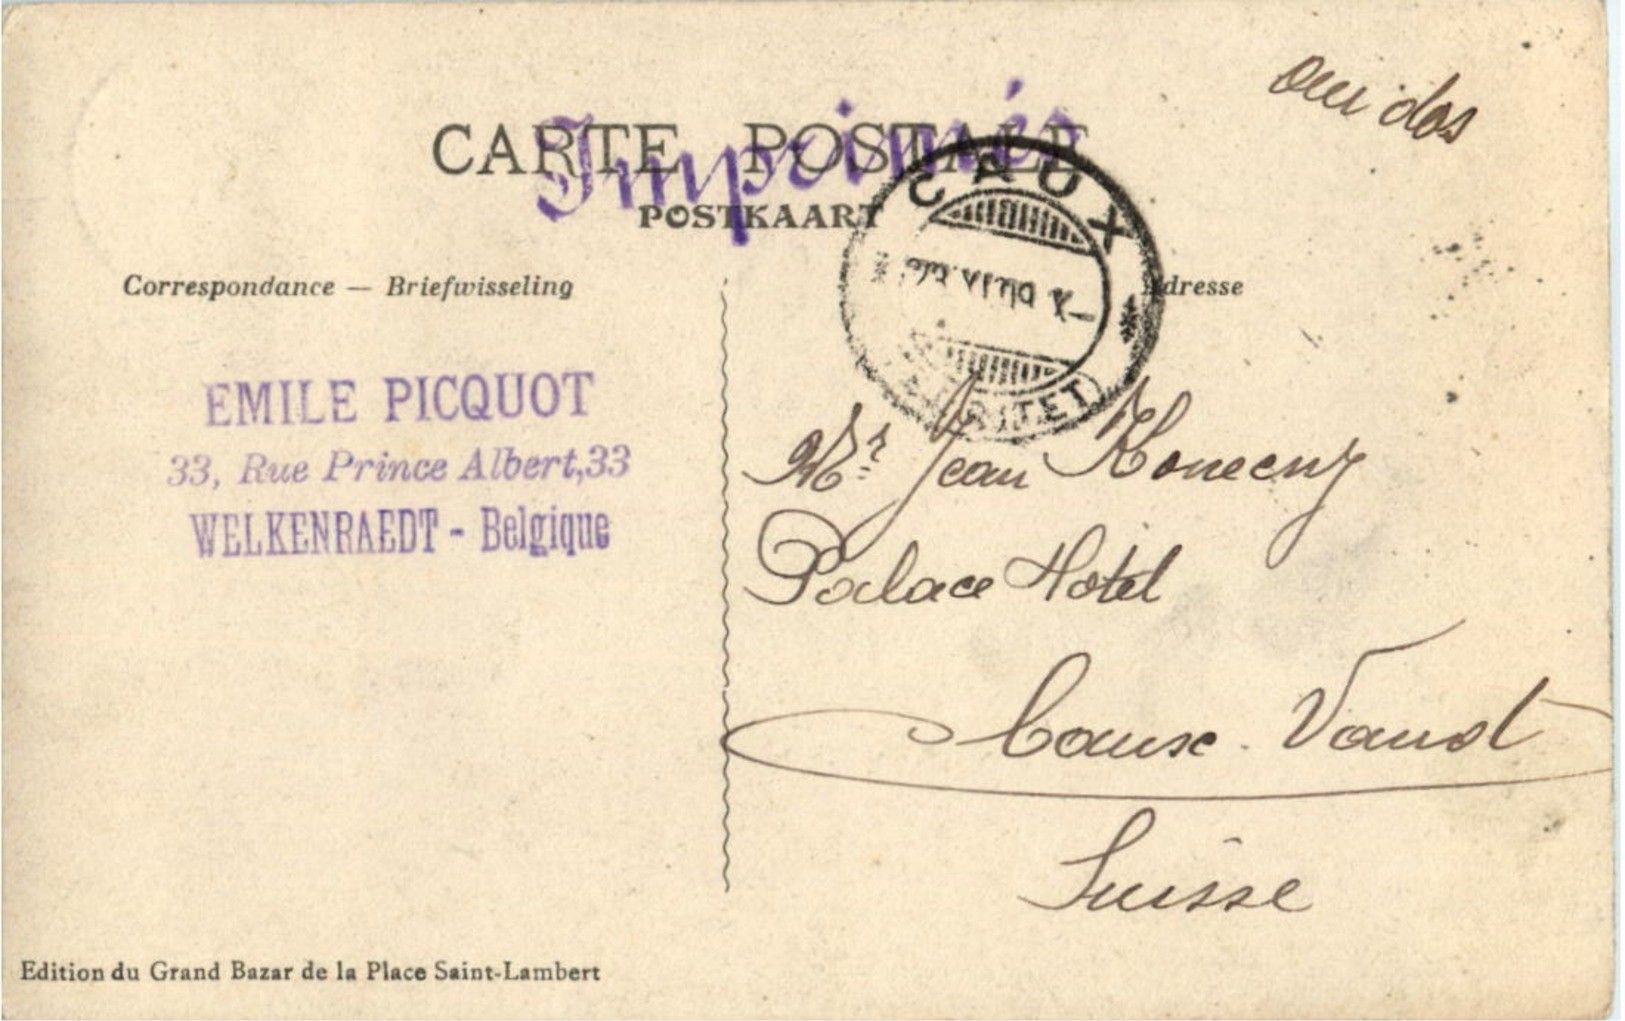 au dos
CARTE POSTALE
Imprimés
POSTKAART
CAUX
Correspondance — Briefwisseling
Adresse
EMILE PICQUOT
33, Rue Prince Albert, 33
WELKENRAEDT - Belgique
Mr. Jean Konecny
Palace Hotel
Caux. Vaud
Suisse
Edition du Grand Bazar de la Place Saint-Lambert